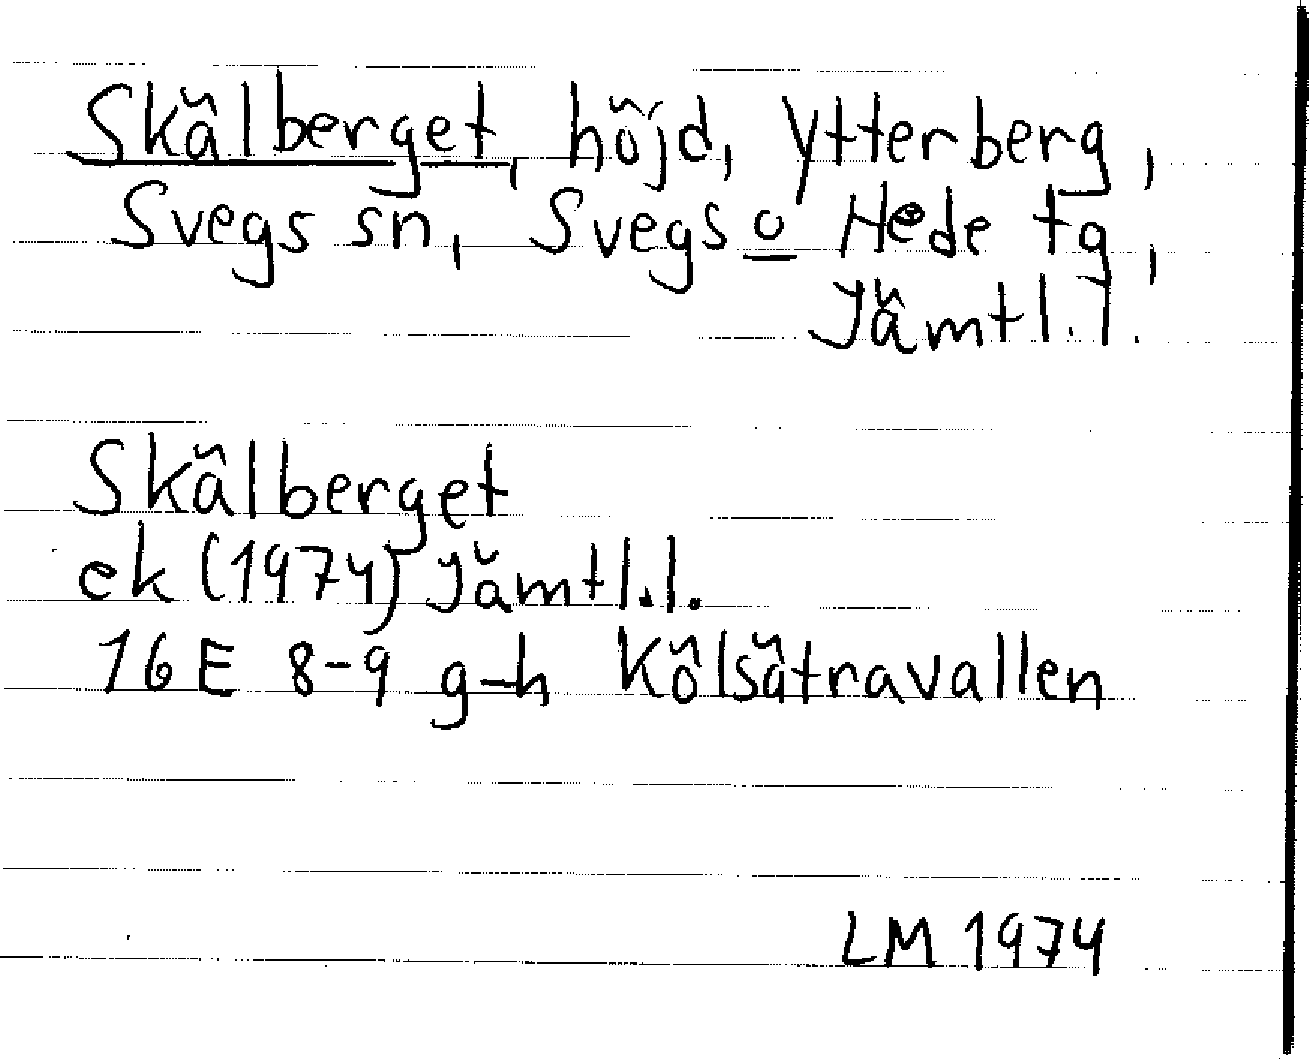 Skälberget, höjd, Ytterberg,
Svegs sn, Svegs o Hede tg,
Jämtl.l.
Skälberget
ek (1974) Jämtl.l.
16E 8-9 g-h Kölsätravallen
LM 1974